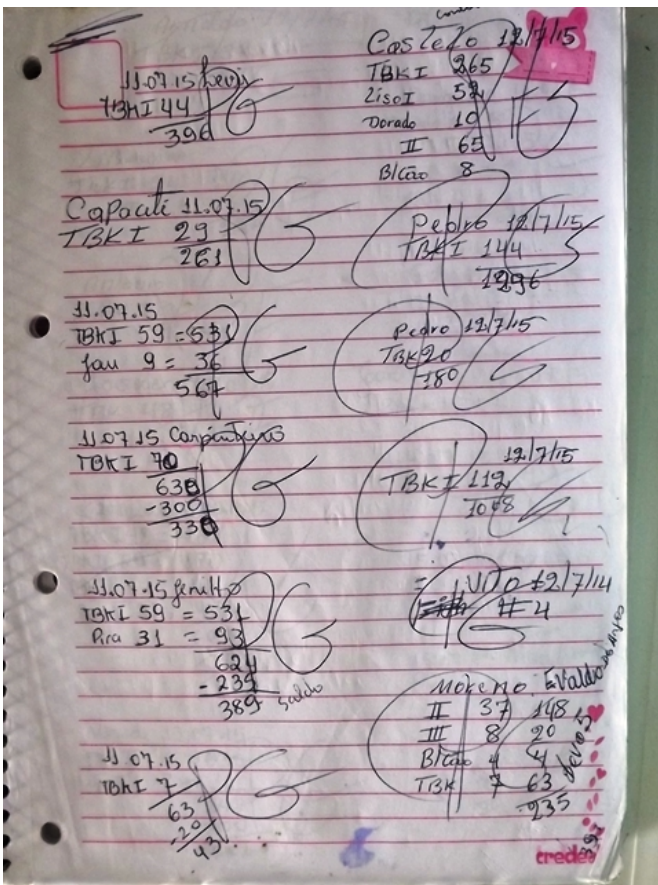 11.07.15
TBKI 44
396
PG
Capaciti 11.07.15
TBKI 29
261
PG
11.07.15
TBKI 59 = 531
Jau 9 = 36
567
PG
11.07.15 Carpinteiro
TBKI 70
630
-300
330
PG
11.07.15
TBKI 59 = 531
Pira 31 = 93
624
- 239
389 Saldo
PG
11 07.15
TBKI 7
63
-20
43
PG
Castelo 12/7/15
TBKI 265
LisoI 52
Dorado 10
II 65
Blcão 8
Pedro 12/7/15
TBKI 144
1296
Pedro 12/7/15
TBK 20
180
12/7/15
TBKI 112
1008
Vito 12/7/14
# 4
Moreno Evaldo
II 37 148
III 8 20
Blcão 4 4
TBK 7 63
235
credeal